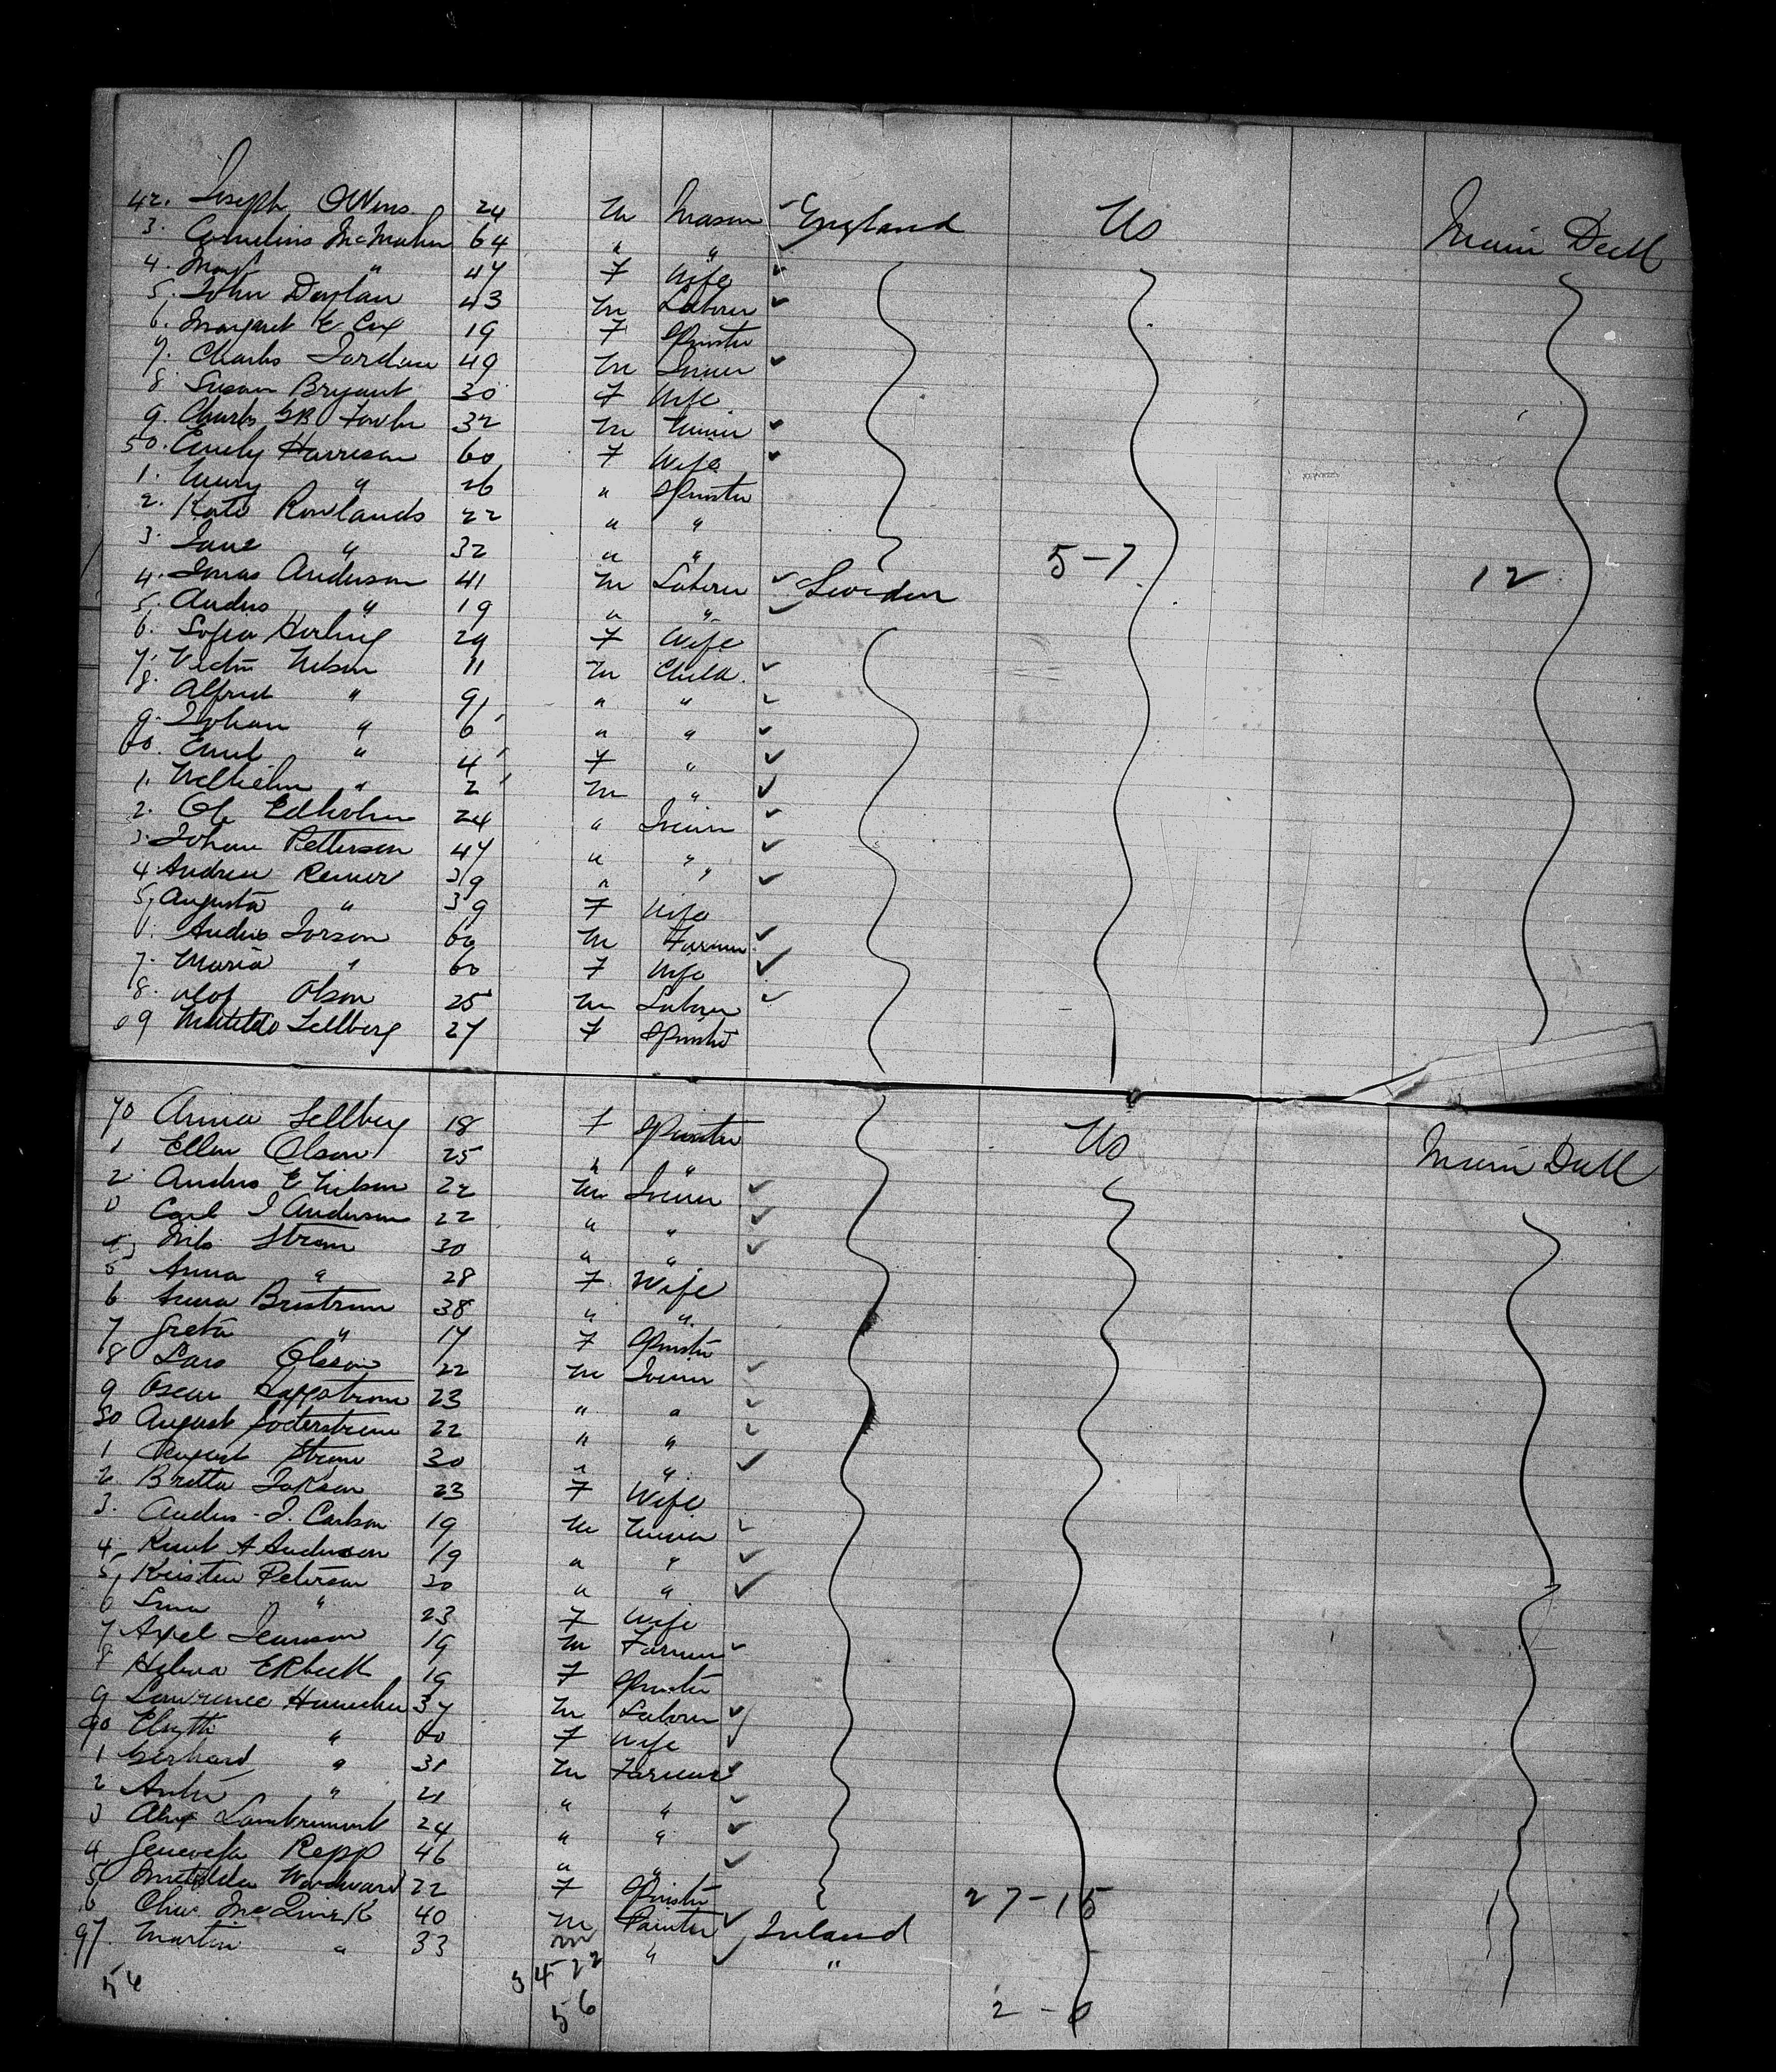 42. Joseph Owens 24 m Mason England Us Main Deck
3. Cornelius McMahon 64 " "
4. Mary " 47 F Wife
5. John Doylan 43 m Laborer
6. Margaret E Cox 19 F Spinster
7. Charles Jordan 49 m Joiner
8 Susan Bryant 30 F Wife
9. Charles Fowler 32 m Miner
50. Emily Harrison 60 F Wife
1. " 26 " Spinster
2. Kate Rowlands 22 " "
3. Jane " 32 " " 5-7
4. Jonas Anderson 41 m Laborer Sweden 12
5. Andrs " 19 " "
6. Sofia Herling 29 F Wife
7. Victor Nilson 11 m Child
8. Alfred " 9 " "
9. Johan " 6 " "
60. Emil " 4 F "
1. Wilhelm " 2 m "
2. Ole Edholm 24 " Joiner
3. Johan Petterson 47 " "
4. Andrew Renner 39 " "
5. Augusta " 39 F Wife
6. Andrs Torson 60 m Farmer
7. Maria " 60 F Wife
8. Olof Olson 25 m Laborer
69 Matilda Sellberg 27 F Spinster
70 Anna Sellberg 18 F Spinster Us Main Deck
1 Ellen Olson 25 " "
2 Andrs E Nilson 22 m Joiner
3 Carl J Anderson 22 " "
4 Nils Strom 30 " "
5 Anna " 28 F Wife
6 Anna Bristrom 38 " "
7 Greta " 17 F Spinster
8 Lars Olsson 22 m Joiner
9 Oscar Haggstrom 23 " "
80 August Soderstrom 22 " "
1 August Strom 30 " "
2. Britta 23 F Wife
3. Andrs J. Carlson 19 m Miner
4. Knut A Anderson 19 " "
5. Kristen Peterson 30 " "
6 " 23 F Wife
7 Axel Jeanson 19 m Farmer
8 Helena Ekbeck 19 F Spinster
9 Lawrence 37 m Laborer
90 " 60 F Wife
1 Gerhard " 31 m Farmer
2 " 21 " "
3 Alex 24 " "
4 Genevefa Repp 46 " "
5 Matilda Woodward 22 F Spinster 27-15
6 Chas McQuirk 40 m Painter Ireland
97. Martin " 33 m " "
56 34 22
56 2-0